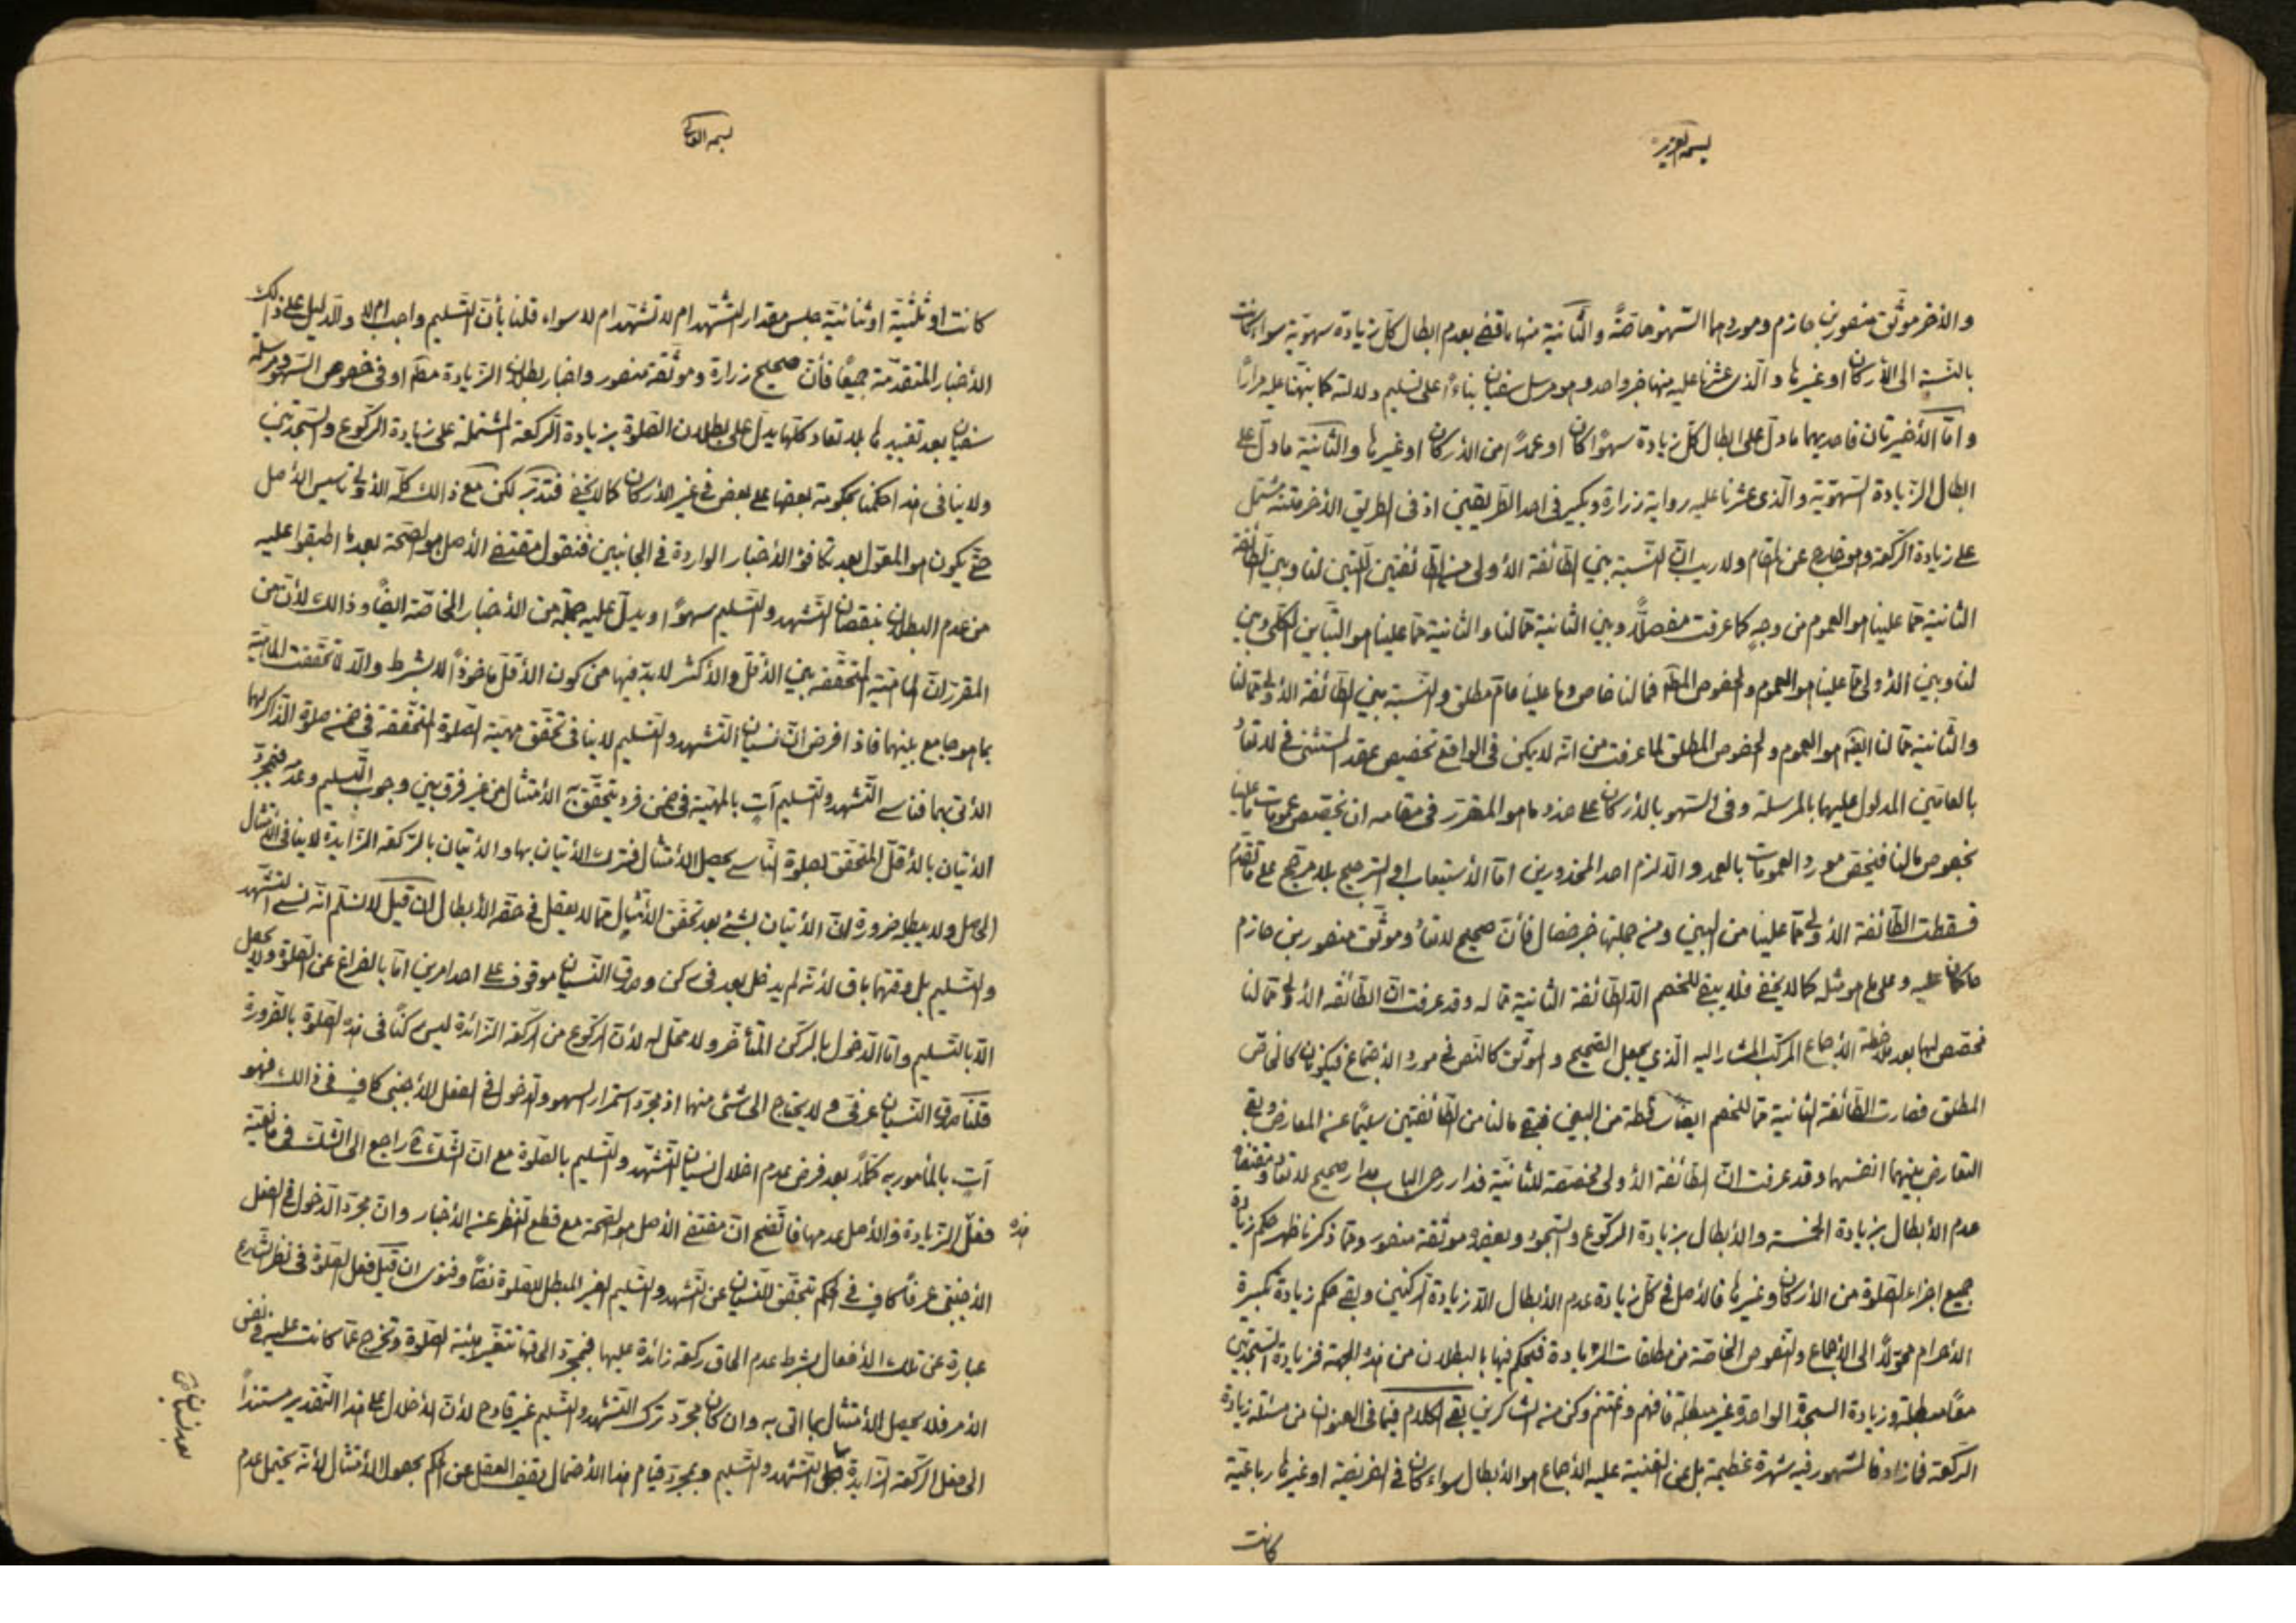 بسمه العزيز
والأخر موثق منصور بن حازم ومورد هما السّهو خاصّة والثّانية منها ما قضى بعدم ابطال كلّ زيادة سهوّية سواء كانت
بالنّسبة الى الأركان او غيرها والّذى عثرنا عليه منها خبر واحد وهو مرسل سفيان بناءً على تسليم دلالته كما نبّهنا عليه مرارًا
وامّا الأخيرتان فاحديهما ما دلّ على ابطال كلّ زيادة سهوًا كان او عمدًا من الأركان او غيرها والثّانية ما دلّ على
ابطال الزّيادة السّهوّية والّذى عثرنا عليه رواية زرارة وبكير فى احد الطّريقين اذ فى الطريق الأخر متنه مشتمل
على زيادة الرّكعة وهو خارج عن المقام ولا ريب انّ النّسبة بين الطّائفة الأولى من الطّائفتين اللّتين لنا وبين الطّائفة
الثانية ممّا علينا هو العموم من وجهٍ كما عرفت مفصلًا وبين الثانية ممّا لنا والثانية ممّا علينا هو التّباين الكلّى وبين
لنا وبين الأولى ممّا علينا هو العموم والخصوص المطلق فما لنا خاص وما علينا عامّ مطلق والنّسبة بين الطّائفة الأولى ممّا لنا
والثّانية ممّا لنا ايضًا هو العموم والخصوص المطلق لما عرفت من انّه لا يمكن فى الواقع تخصيص عقد المستثنى فى لا تعاد
بالعامّين المدلول عليهما بالمرسلة وفى السّهو بالأركان على حذو ما هو المقرّر فى مقامه ان يخصّص عمومات ما علينا
بخصوص ما لنا فيختصّ مورد العمومات بالعمد والّا لزم احد المحذورين امّا الأستيعاب او الترجيح بلا مرجّح على ما تقدّم
فسقطت الطّائفة الأولى ممّا علينا من البين ومن جملتها خبر خصال فأنّ صحيح لا تعاد وموثّق منصور بن حازم
حاكمان عليه وعلى ما هو مثله كما لا يخفى فلا يبقى للخصم الّا الطّائفة الثانية ممّا له وقد عرفت انّ الطّائفة الأولى ممّا لنا
مخصّص لها بعد ملاحظة الأجماع المركّب المشار اليه الّذي يجعل الصّحيح والموثّق كالنّص فى مورد الأجتماع فيكونان كالخاصّ
المطلق فصارت الطّائفة الثانية ممّا للخصم ايضًا ساقطة من البين فبقى ما لنا من الطّائفتين سليمًا عن المعارض وبقى
التعارض بينهما انفسهما وقد عرفت انّ الطّائفة الأولى مخصّصة للثانيّة فدار رحى الباب مدار صحيح لا تعاد ومقتضاه
عدم الأبطال بزيادة الخمسة والأبطال بزيادة الرّكوع والسّجود ويعضده موثّقة منصور وممّا ذكرنا ظهر حكم زيادة
جميع اجزاء الصّلوة من الأركان وغيرها فالأصل فى كلّ زيادة عدم الأبطال الّا زيادة الرّكنين وبقى حكم زيادة تكبيرة
الأحرام محوّلًا الى الأجماع والنّصوص الخاصّة من مطلقات الزّيادة فيحكم فيها بالبطلان من هذه الجهة فزيادة السّجدتين
معًا مبطلة وزيادة السجدة الواحدة غير مبطلة فافهم واغتنم وكن من الشّاكرين بقى الكلام فيما فى العنوان من مسئلة زيادة
الرّكعة فما زاد فالمشهور فيه شهرة عظيمة بل عن الغنية عليه الأجماع هو الأبطال سواء كان فى الفريضة او غيرها رباعيّة
كانت
بسمه العالى
كانت او ثلثيّة او ثنائيّة جلس مقدار التّشهّد ام لا تشهّد ام لا سواء قلنا بأنّ التّسليم واجب ام لا والدّليل على ذالك
الأخبار المتقدّمة جميعًا فأنّ صحيح زرارة وموثّقة منصور واخبار بطلان الزّيادة مطلقا او فى خصوص السّهو ومرسلة
سفيان بعد تقييدها بلا تعاد كلّها يدلّ على بطلان الصّلوة بزيادة الرّكعة المشتملة على زيادة الرّكوع والسّجدتين
ولا ينافى هذا حكمنا بحكومة بعضها على بعض فى غير الأركان كما لا يخفى فتدبّر لكن مع ذالك كلّه الأولى تاسيس الأصل
حتّى يكون هو المعوّل بعد تكافؤ الأخبار الواردة فى الجانبين فنقول مقتضى الأصل هو الصّحة بعد ما اطبقوا عليه
من عدم البطلان بنقصان التّشهد والتّسليم سهوًا ويدلّ عليه جملة من الأخبار الخاصّة ايضًا وذالك لأنّ من
المقرّر انّ الماهيّة المتحقّقة بين الأقلّ والأكثر لا بدّ فيها من كون الأقلّ ماخوذًا لا بشرط والّا لا تحقّقت الماهيّة
بما هو جامع بينهما فاذا فرض انّ نسيان التّشهد والتّسليم لا ينافى تحقّق مهيّة الصّلوة المتحقّقة فى ضمن صلوة الذّاكر لهما
الأتى بهما فناسى التّشهد والتّسليم آتٍ بالمهيّة فى ضمن فرد يتحقّق به الأمتثال من غير فرق بين وجوب التّسليم وعدمه فبمجرّد
الأتيان بالأقلّ المتحقّق لصلوة النّاسى يحصل الأمتثال فترك الأتيان بها والأتيان بالرّكعة الزّايدة لا ينافى الأمتثال
الحاصل ولا يبطله ضرورة انّ الأتيان بشئ بعد تحقّق الأمتثال ممّا لا يعقل فى حقّه الأبطال فان قيل لا نسلّم انّه نسى التّشهد
والتّسليم بل وقتهما باق لأنّه لم يدخل بعد فى ركن وصدق النّسيان موقوف على احد امرين امّا بالفراغ عن الصّلوة ولا يحصل
الّا بالتّسليم وامّا الدّخول بالرّكن المتأخّر ولا محلّ له لأنّ الرّكوع من الرّكعة الزّائدة ليس ركنًا فى هذه الصّلوة بالضّرورة
قلنا صدق النّسيان عرفىّ ولا يحتاج الى شئ منهما اذ مجرّد استمرار السهو والدّخول فى الفعل الأجنبى كافٍ فى ذالك فهو
آتٍ بالمأمور به كملًا بعد فرض عدم اخلال نسيان التّشهّد والتّسليم بالصّلوة مع انّ الشّكّ راجع الى الشّكّ فى مانعيّة
هذه فعل الزّيادة والأصل عدمها فاتّضح انّ مقتضى الأصل هو الصّحة مع قطع النّظر عن الأخبار وانّ مجرّد الدّخول فى الفعل
الأجنبىّ عرفًا كافٍ فى الحكم بتحقّق النّسيان عن التّشهد والتّسليم الغير المبطل للصّلوة نصًّا وفتوى ان قيل فعل الصّلوة فى نظر الشّارع
عبارة عن تلك الأفعال بشرط عدم الحاق ركعة زائدة عليها فبمجرّد الحاقها تتغيّر هيئة الصّلوة وتخرج عمّا كانت عليه فى نفس
الأمر فلا يحصل الأمتثال بما اتى به وان كان مجرّد ترك التّشهد والتّسليم غير قادح لأنّ الأخلال على هذا التّقدير مستندًا
الى فعل الرّكعة الزّايدة قبل التّشهد والتّسليم وبمجرّد قيام هذا الأحتمال يقف العقل عن الحكم بحصول الأمتثال لأنّه يحتمل عدم